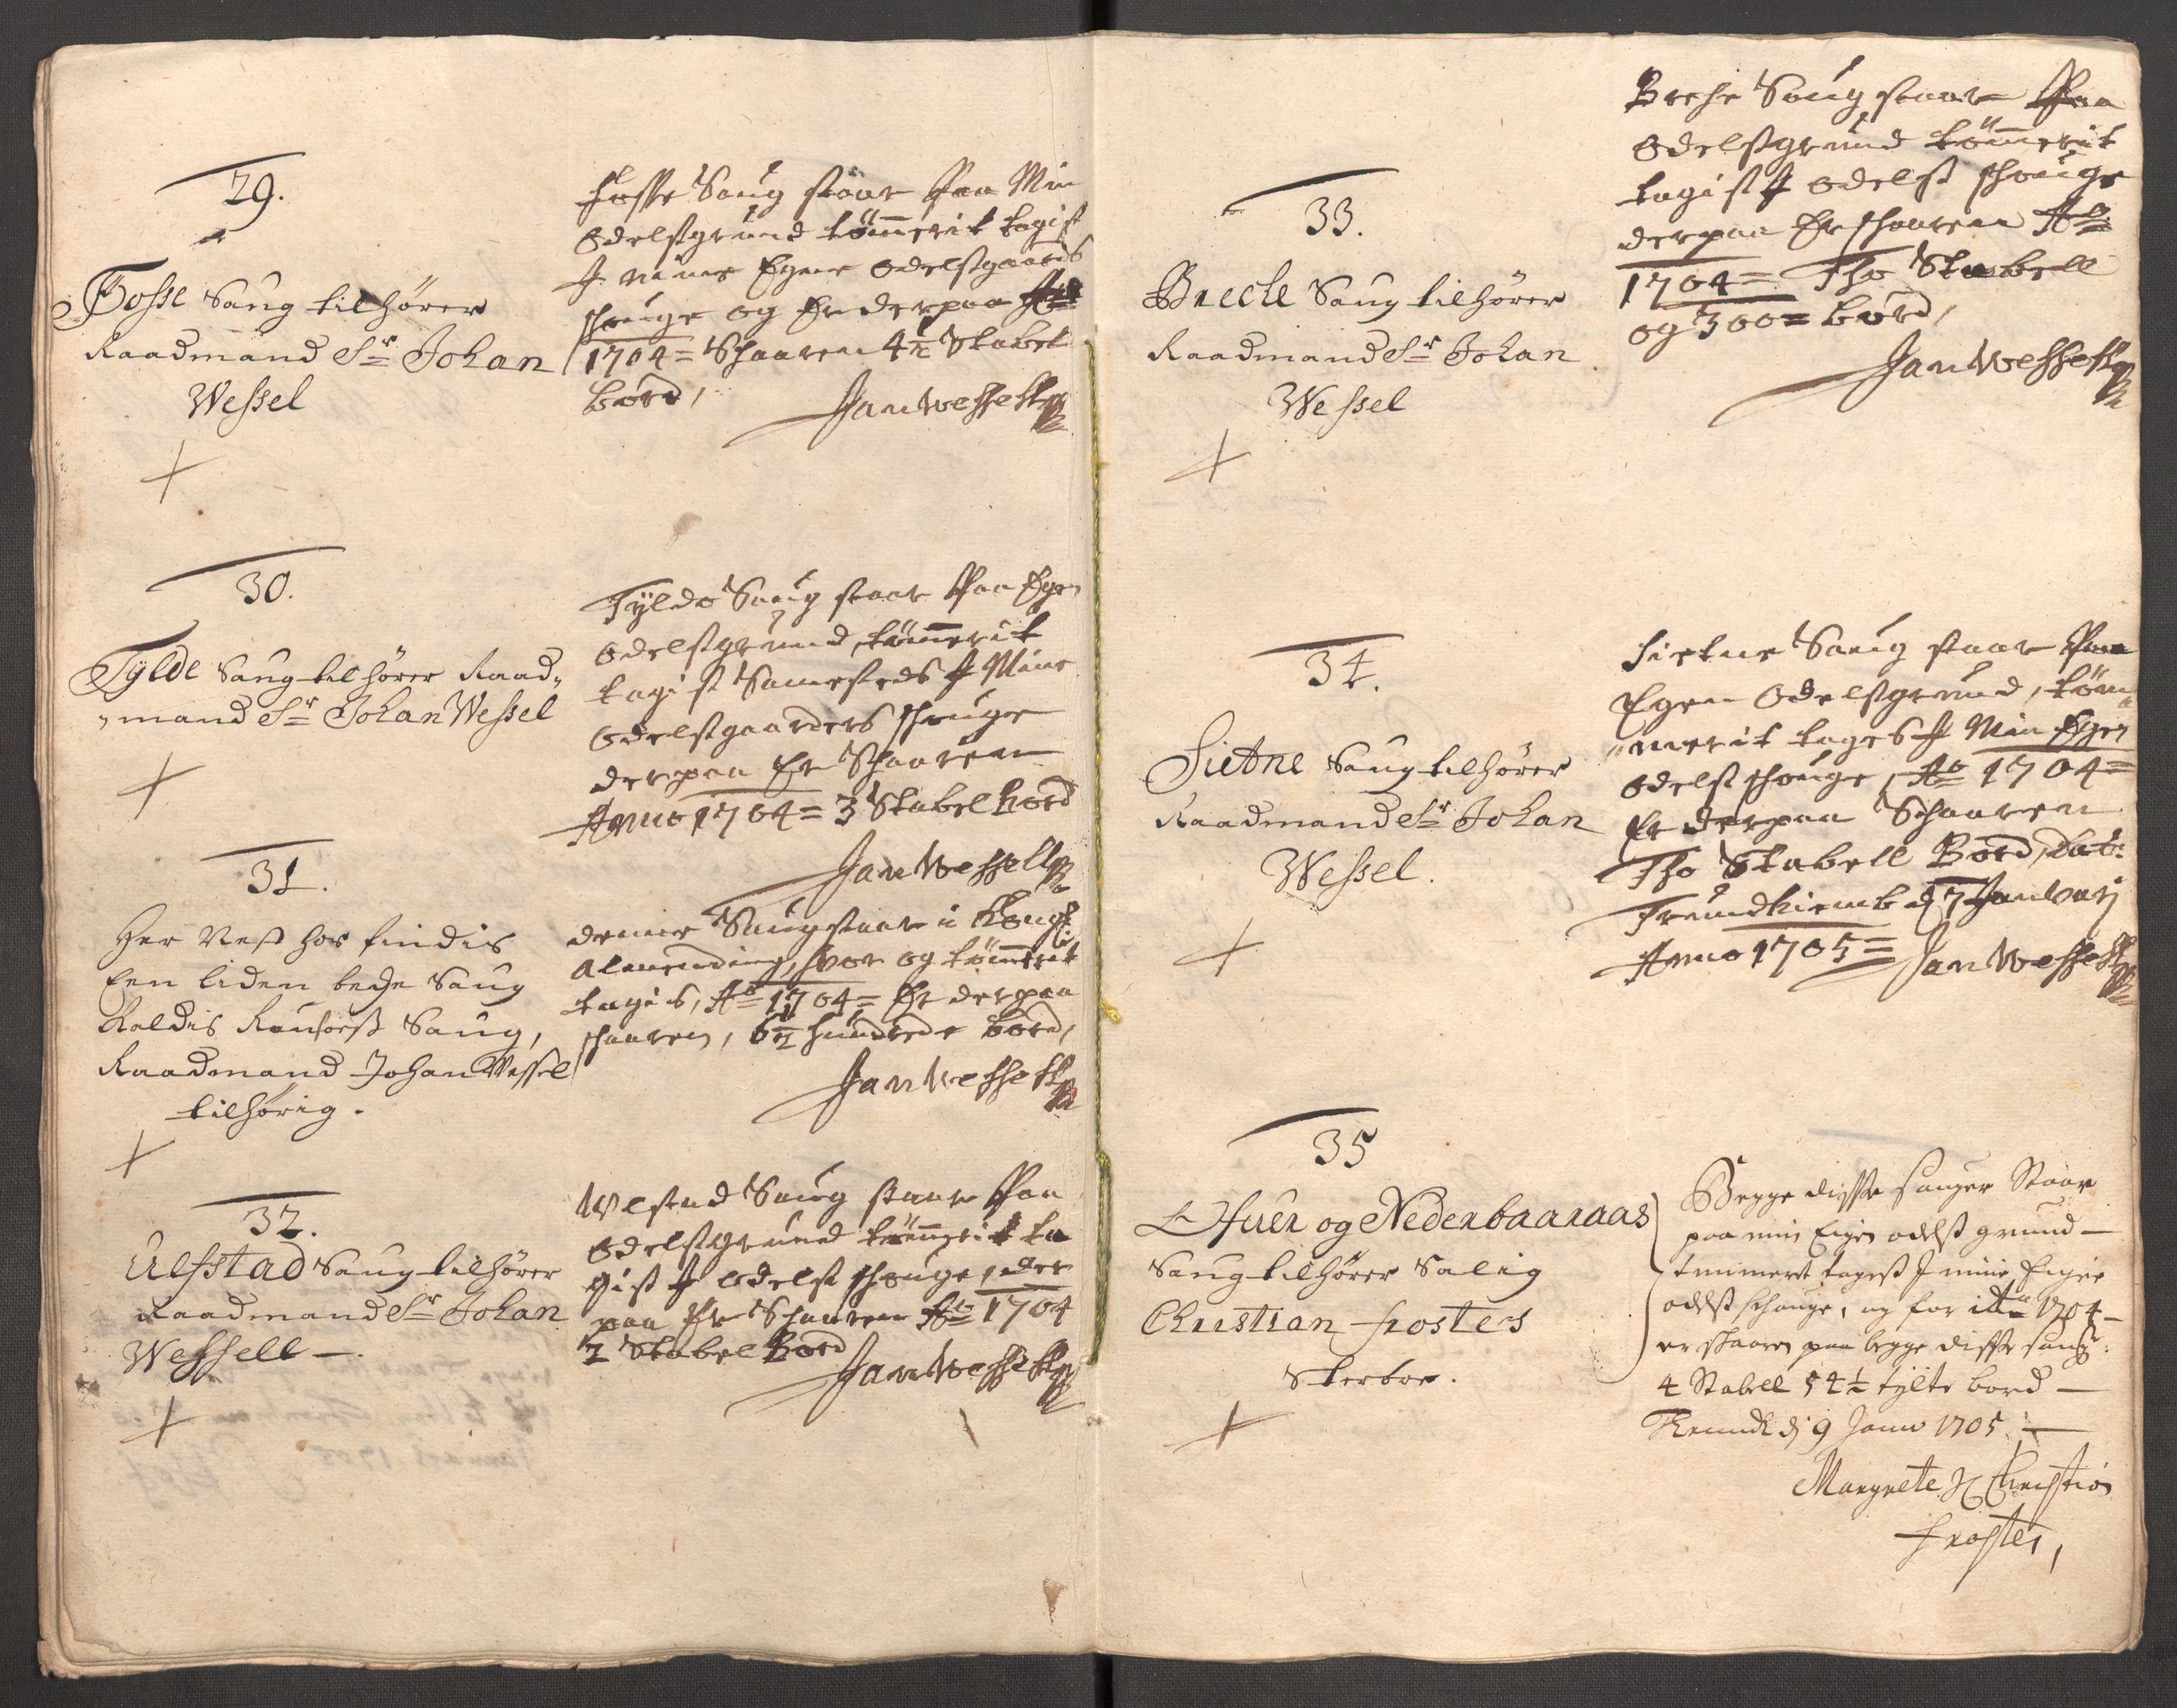 29.
Fosse Saug tilhører
Raadmand Sr Johan
Wessel
Fosse Saug staar Paa Min
Odelstgrund tömerit tagist
J mine Egne odelstgaards
schouge og Er derpaa Ao
1704 = Schaaren 4½ Stabel
bord,
Jan Wessell
30.
Tylde Saug tilhører Raad„
„mand Sr Johan Wessel
Tylde Saug staar Paa Egen
Odelstgrund, tömerit
tagist Samesteds J Mine
Odelstgaarders schouge
derpaa Er Schaaren
Anno 1704 = 3 Stabel bord
Jan Wessell
31.
Her Nest hos findis
Een liden bede Saug
Kaldis Saug,
Raadmand Johan Wessel
tilhörig.
denne Saug staar i Kongl:
Almending, hvor og tömerit
tagis, Ao 1704 = Er derpaa
schaaren, 6½ hundrede bord,
Jan Wessell
32.
Ulfstad Saug tilhører
Raadmand Sr Johan
Wessell —
Wlstad Saug staar Paa
Odelstgrund tömerit ta
gist J odelst schouge, der
paa Er Schaaren Ao 1704
½ Stabel Bord
Jan Wessell
33.
Brecke Saug tilhører
Raadmand Sr Johan
Wessel
Saug staar Paa
Odelstgrund tömerit
tagist J odelst schouge
derpaa Er schaaren Ao
1704 = Tho Stabell
og 300 = bord,
Jan Wessell
34.
Sietne Saug tilhører
Raadmand Sr Johan
Wessel.
Sietne Saug staar Paa
Egen Odelstgrund, töm
„merit tages J Min Egen
odelst schouge, Ao 1704 =
Er derpaa Schaaren
Tho Stabell Bord, dat:
Trundhiemb d 7 Januarj
Anno 1705 = Jan Wessell
35
Ofuer og Nederbaaraas
Saug tilhører Salig
Christian Frosters
Sterboe.
Begge disse sauger Staar
paa min Eigen odelst grund —
tmmert tagest J mine Eigne
odelst schouge, og for Ao 1704 —
er skaaren paa begge disse saug:
4 Stabell 54½ tylte bord —
d 9 Janu 1705 —
Margrete Christian
Froster,